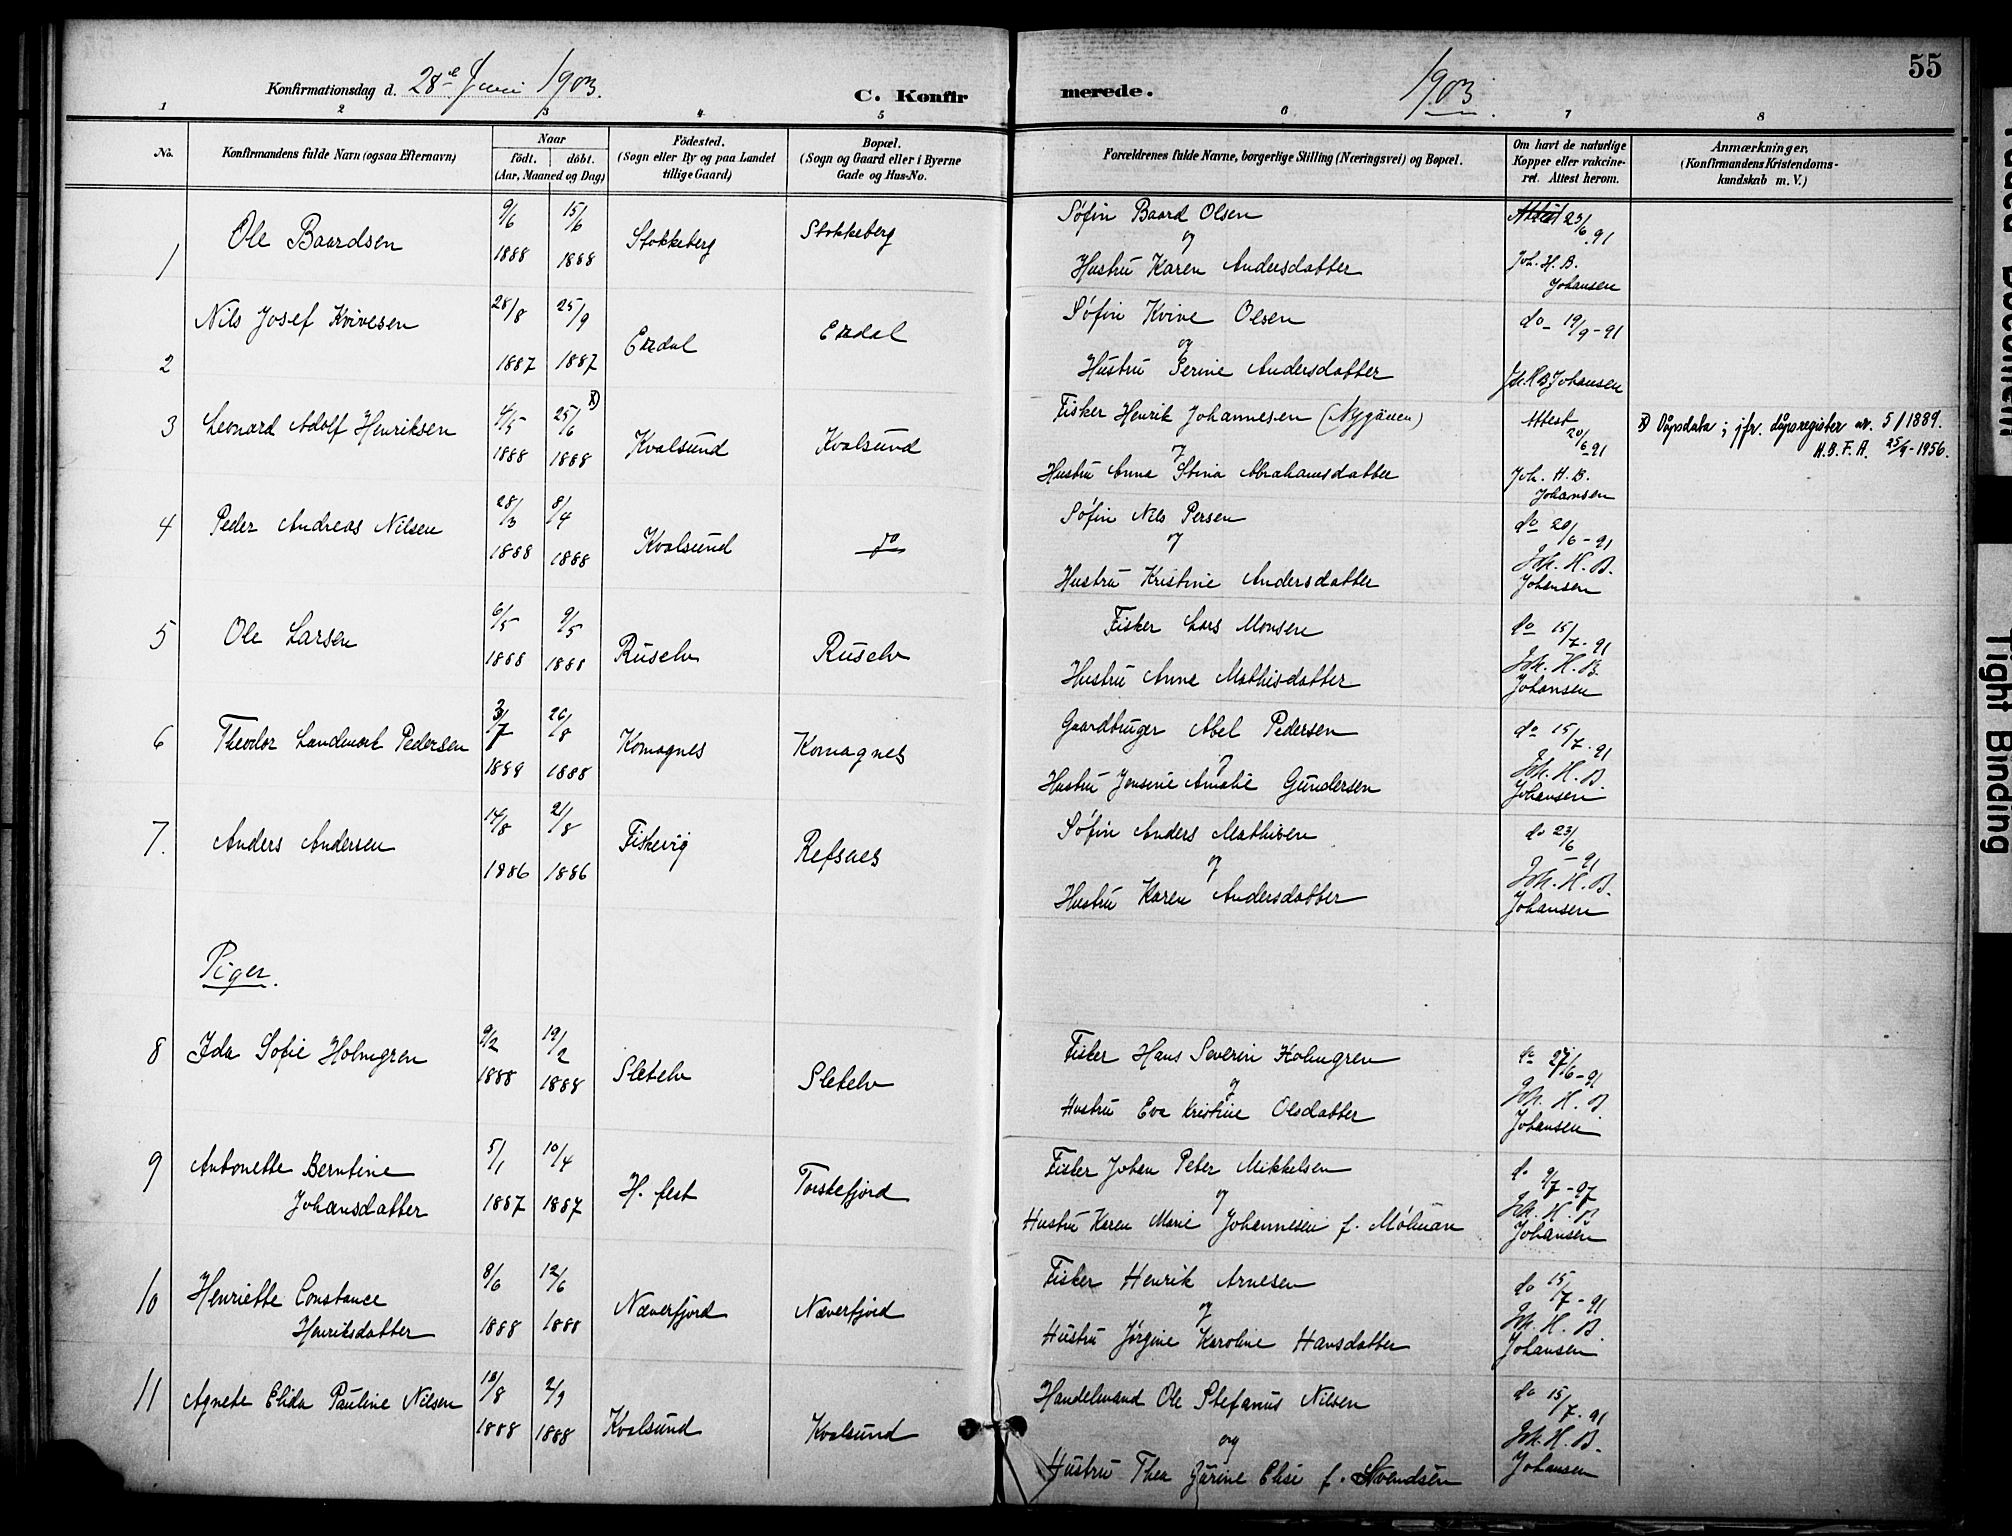 55
Konfirmationsdag d. 28de Juni 1903.
C. Konfirmerede.
1903
1 2 3 4 5 6 7 8
No.
Konfirmandens fulde Navn (ogsaa Efternavn)
Naar
födt. döbt.
(Aar, Maaned og Dag)
Födested.
(Sogn eller By og paa Landet
tillige Gaard)
Bopæl.
(Sogn og Gaard eller i Byerne
Gade og Hus-No.
Forældrenes fulde Navne, borgerlige Stilling (Næringsvei) og Bopæl.
Om havt de naturlige
Kopper eller vakcine-
ret. Attest herom.
Anmærkninger,
(Konfirmandens Kristendoms-
kundskab m. V.)
1 Ole Baardsen 9/6 1888 15/6 1888 Stokkeberg Stokkeberg
Søfin Baard Olsen
og
Hustru Karen Andersdatter
Attest 23/6 91
Joh. H. B.
Johansen
2 Nils Josef Kvivesen 28/8 1887 25/9 1887
Søfin Kvive Olsen
og
Hustru Serine Andersdatter
do - 19/9 - 91
Joh. H. B. Johansen
3 Leonard Adolf Henriksen 4/5 1888 25/6 x) 1888 Kvalsund Kvalsund
Fisker Henrik Johannesen (Nygåuen)
og
Hustru Anne Stina Abrahamsdatter
Attest
20/6 - 91
Joh. H. B.
Johansen
x) Dåpsdata; jfr. dåpsregister nr. 5/1889.
H.B.F.A. 25/9-1956.
4 Peder Andreas Nilsen 28/3 1888 8/4 1888 Kvalsund do
Søfin Nils Persen
og
Hustru Kristine Andersdatter
do 20/6 - 91
Joh. H. B.
Johansen
5 Ole Larsen 6/5 1888 9/5 1888 Ruselv Ruselv
Fisker Lars Monsen
Hustru Anne Mathisdatter
do 15/7 - 91
Joh. H. B.
Johansen
6 Theodor Landmark Pedersen 3/7 1888 26/8 1888 Komagnes Komagnes
Gaardbruger Abel Pedersen
og
Hustru Jensine Amalie Gundersen
do 15/7 - 91
Joh. H. B.
Johansen
7. Anders Andersen 14/8 1886 21/8 1886 Fiskevig Refsnes
Søfin Anders Mathisen
og
Hustru Karen Andersdatter
do 23/6 - 91
Joh. H. B.
Johansen
Piger.
8 Ida Sofie Holmgren 9/2 1888 19/2 1888 Sletelv Sletelv
Fisker Hans Severin Holmgren
og
Hustru Eva Kristine Olsdatter
do 27/6 - 91
Joh. H. B.
Johansen
9 Antonette Berntine
Johansdatter 5/1 1887 10/4 1887 H. fest Torskefjord
Fisker Johan Peter Mikkelsen
og
Hustru Karen Marie Johannesen f. Mølman
do 9/7 - 97
Joh. H. B.
Johansen
10 Henriette Constance
Henriksdatter 8/6 1888 12/6 1888 Næverfjord Næverfjord
Fisker Henrik Arnesen
og
Hustru Jørgine Karoline Hansdatter
do 15/7 - 91
Joh. H. B.
Johansen
11 Agnete Elida Pauline Nilsen 18/8 1888 2/9 1888 Kvalsund Kvalsund
Handelsmand Ole Stefanus Nilsen
og
Hustru Thea Jurine Elise f. Svendsen
do 15/7 - 91
Joh. H. B.
Johansen
Tight Binding